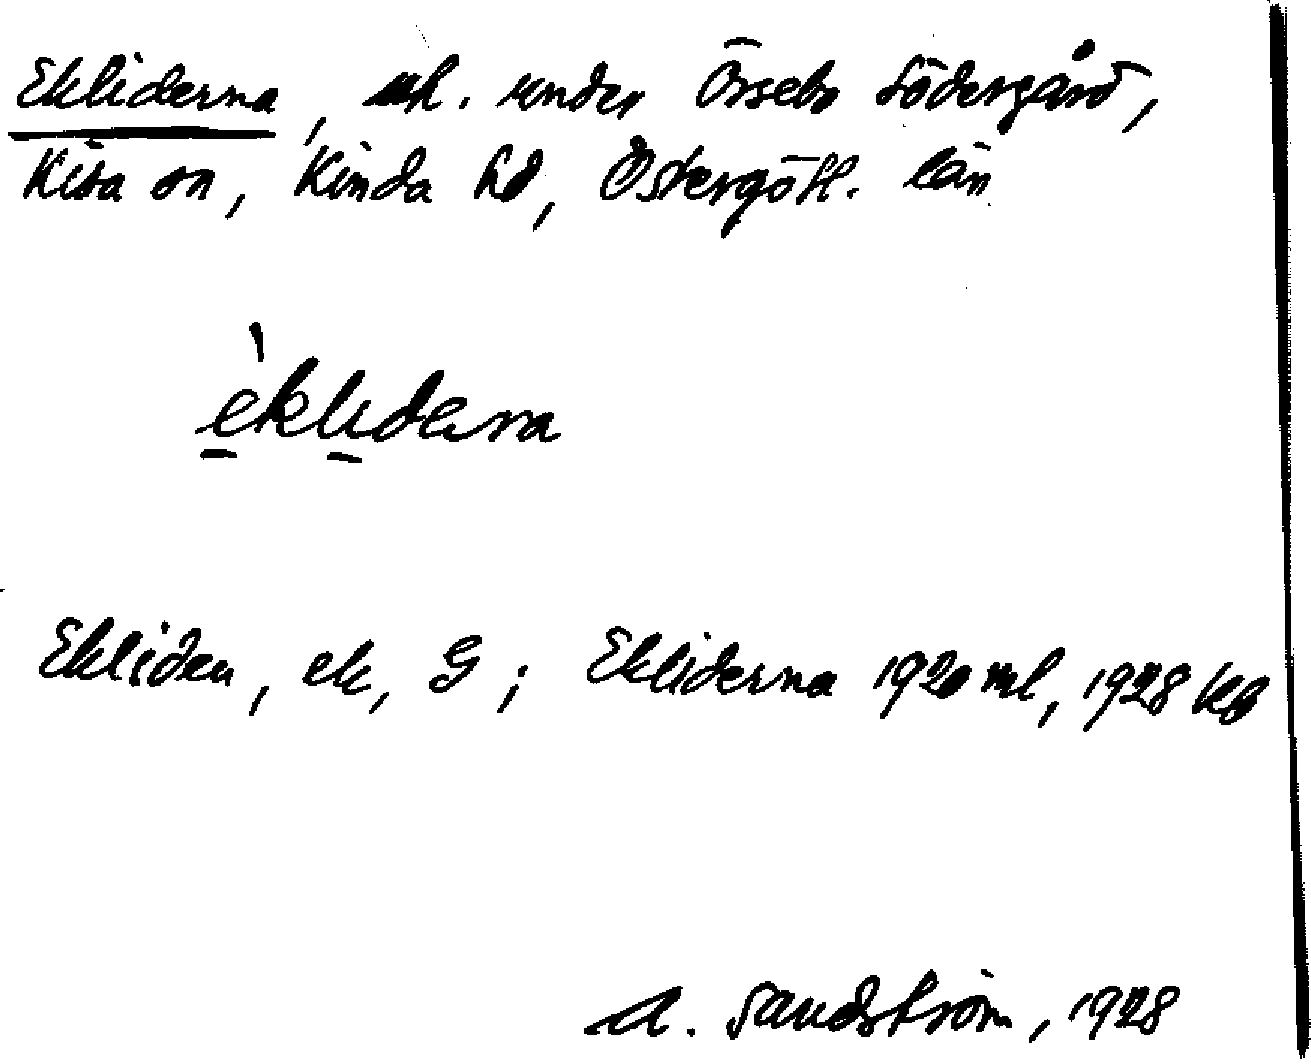 Ekliderna, uh. under Örsebo Södergård,
Kisa sn, Kinda hd, Östergötl. län
èkliderna
Ekliden, ek, G; Ekliderna 1920 ml, 1928 kb
A. Sandström, 1928